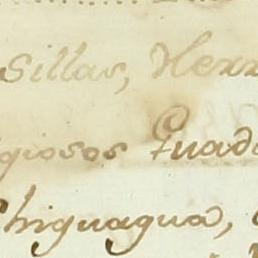 sillas, Herr
giosos Guada
Chiguagua,